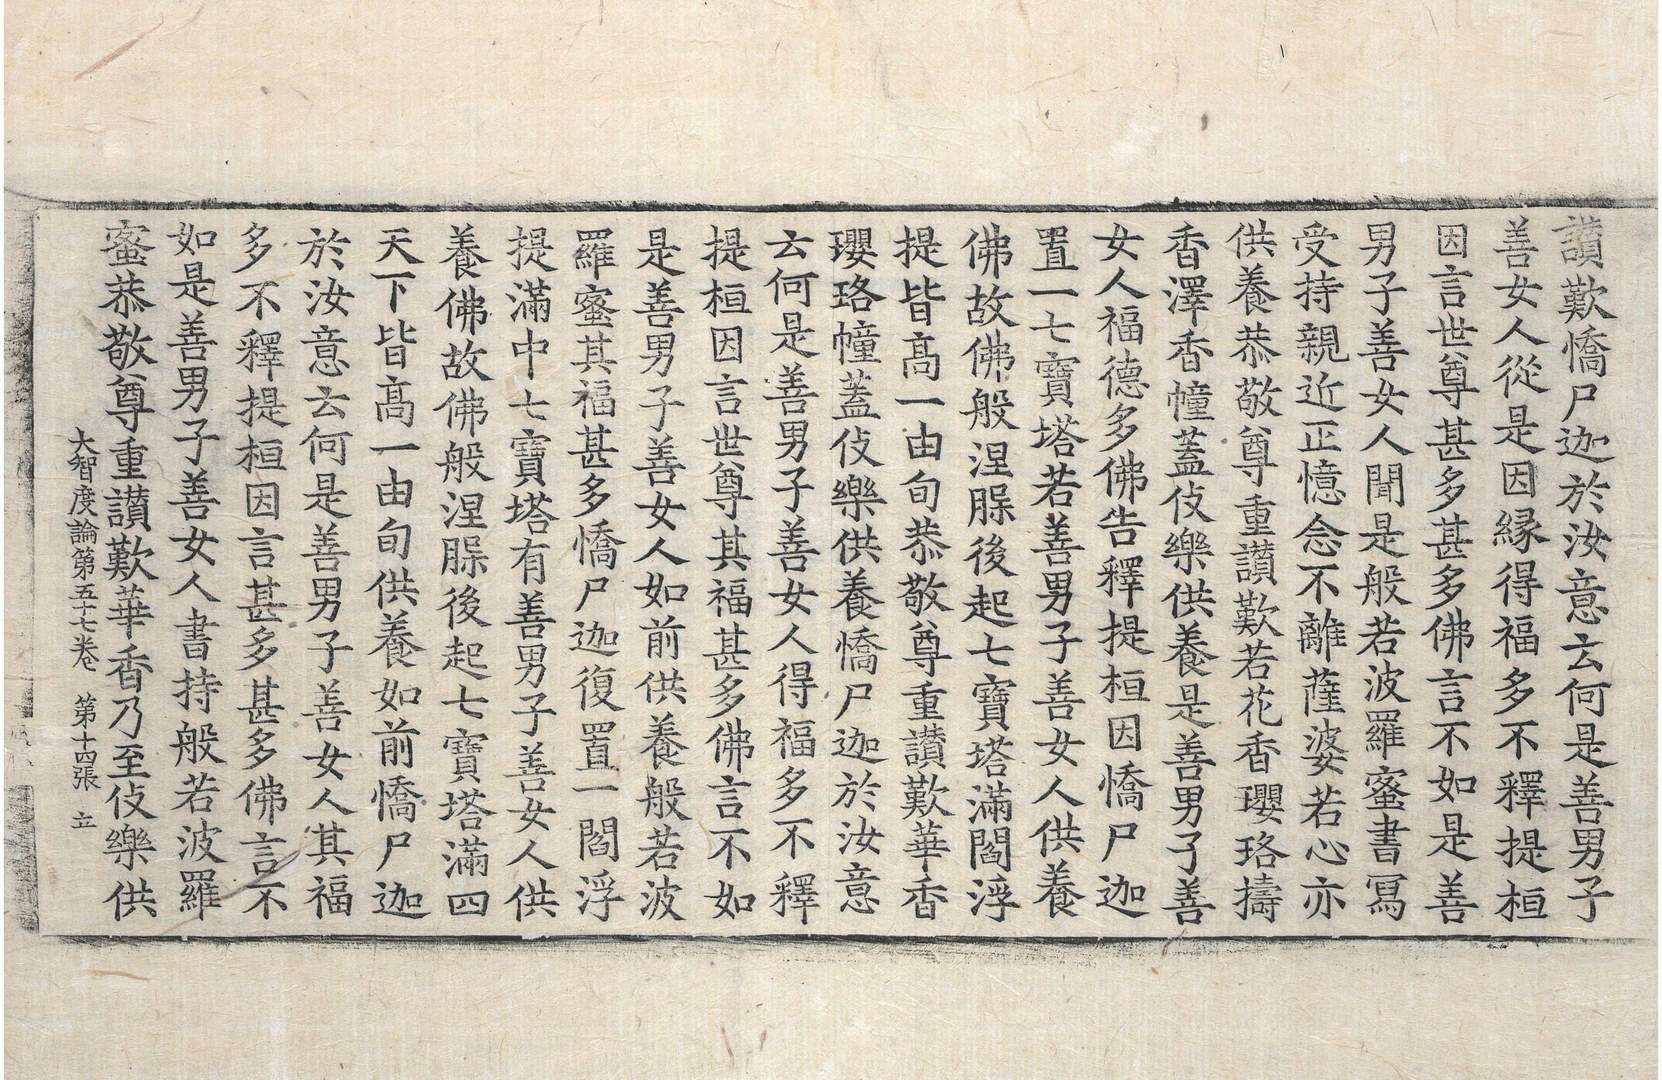 讃歎憍尸迦於汝意云何是善男子
善女人從是因縁得福多不釋提桓
因言世尊甚多甚多佛言不如是善
男子善女人聞是般若波羅蜜書冩
受持親近正憶念不離薩婆若心亦
供養恭敬尊重讃歎若花香瓔珞擣
香澤香幢蓋伎樂供養是善男子善
女人福德多佛告釋提桓因憍尸迦
置一七寶塔若善男子善女人供養
佛故佛般涅槃後起七寶塔滿閻浮
提皆高一由旬恭敬尊重讃歎華香
瓔珞幢蓋伎樂供養憍尸迦於汝意
云何是善男子善女人得福多不釋
提桓因言世尊其福甚多佛言不如
是善男子善女人如前供養般若波
羅蜜其福甚多憍尸迦復置一閻浮
提滿中七寶塔有善男子善女人供
養佛故佛般涅槃後起七寶塔滿四
天下皆高一由旬供養如前憍尸迦
於汝意云何是善男子善女人其福
多不釋提桓因言甚多甚多佛言不
如是善男子善女人書持般若波羅
蜜恭敬尊重讃歎華香乃至伎樂供
大智度論第五十七卷 第十四張 立